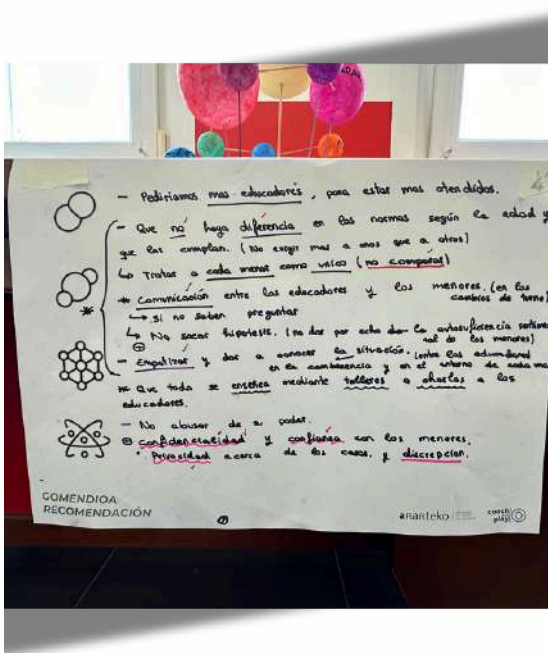 — Pediriamos mas educadores, para estar mas atendidos.
— Que no haya diferencia en las normas según la edad y
que las cumplan. (No exigir mas a unos que a otros)
↳ Tratar a cada menor como unico (no comparar)
* Comunicación entre los educadores y los menores. (en los
cambios de turno)
↳ si no saben preguntar
↳ No sacar hipotesis. (no dar por echo la autosuficiencia
nal de los menores)
— Empatizar y dar a conocer la situación.
en la convivencia y en el entorno de cada
* Que todo se enseñe mediante talleres o charlas a los
educadores.
— No abusar de su poder.
confidencialidad y confianza con los menores.
Privacidad acerca de los casos, y discrepcion.
GOMENDIOA
RECOMENDACIÓN
ararteko
coach
play